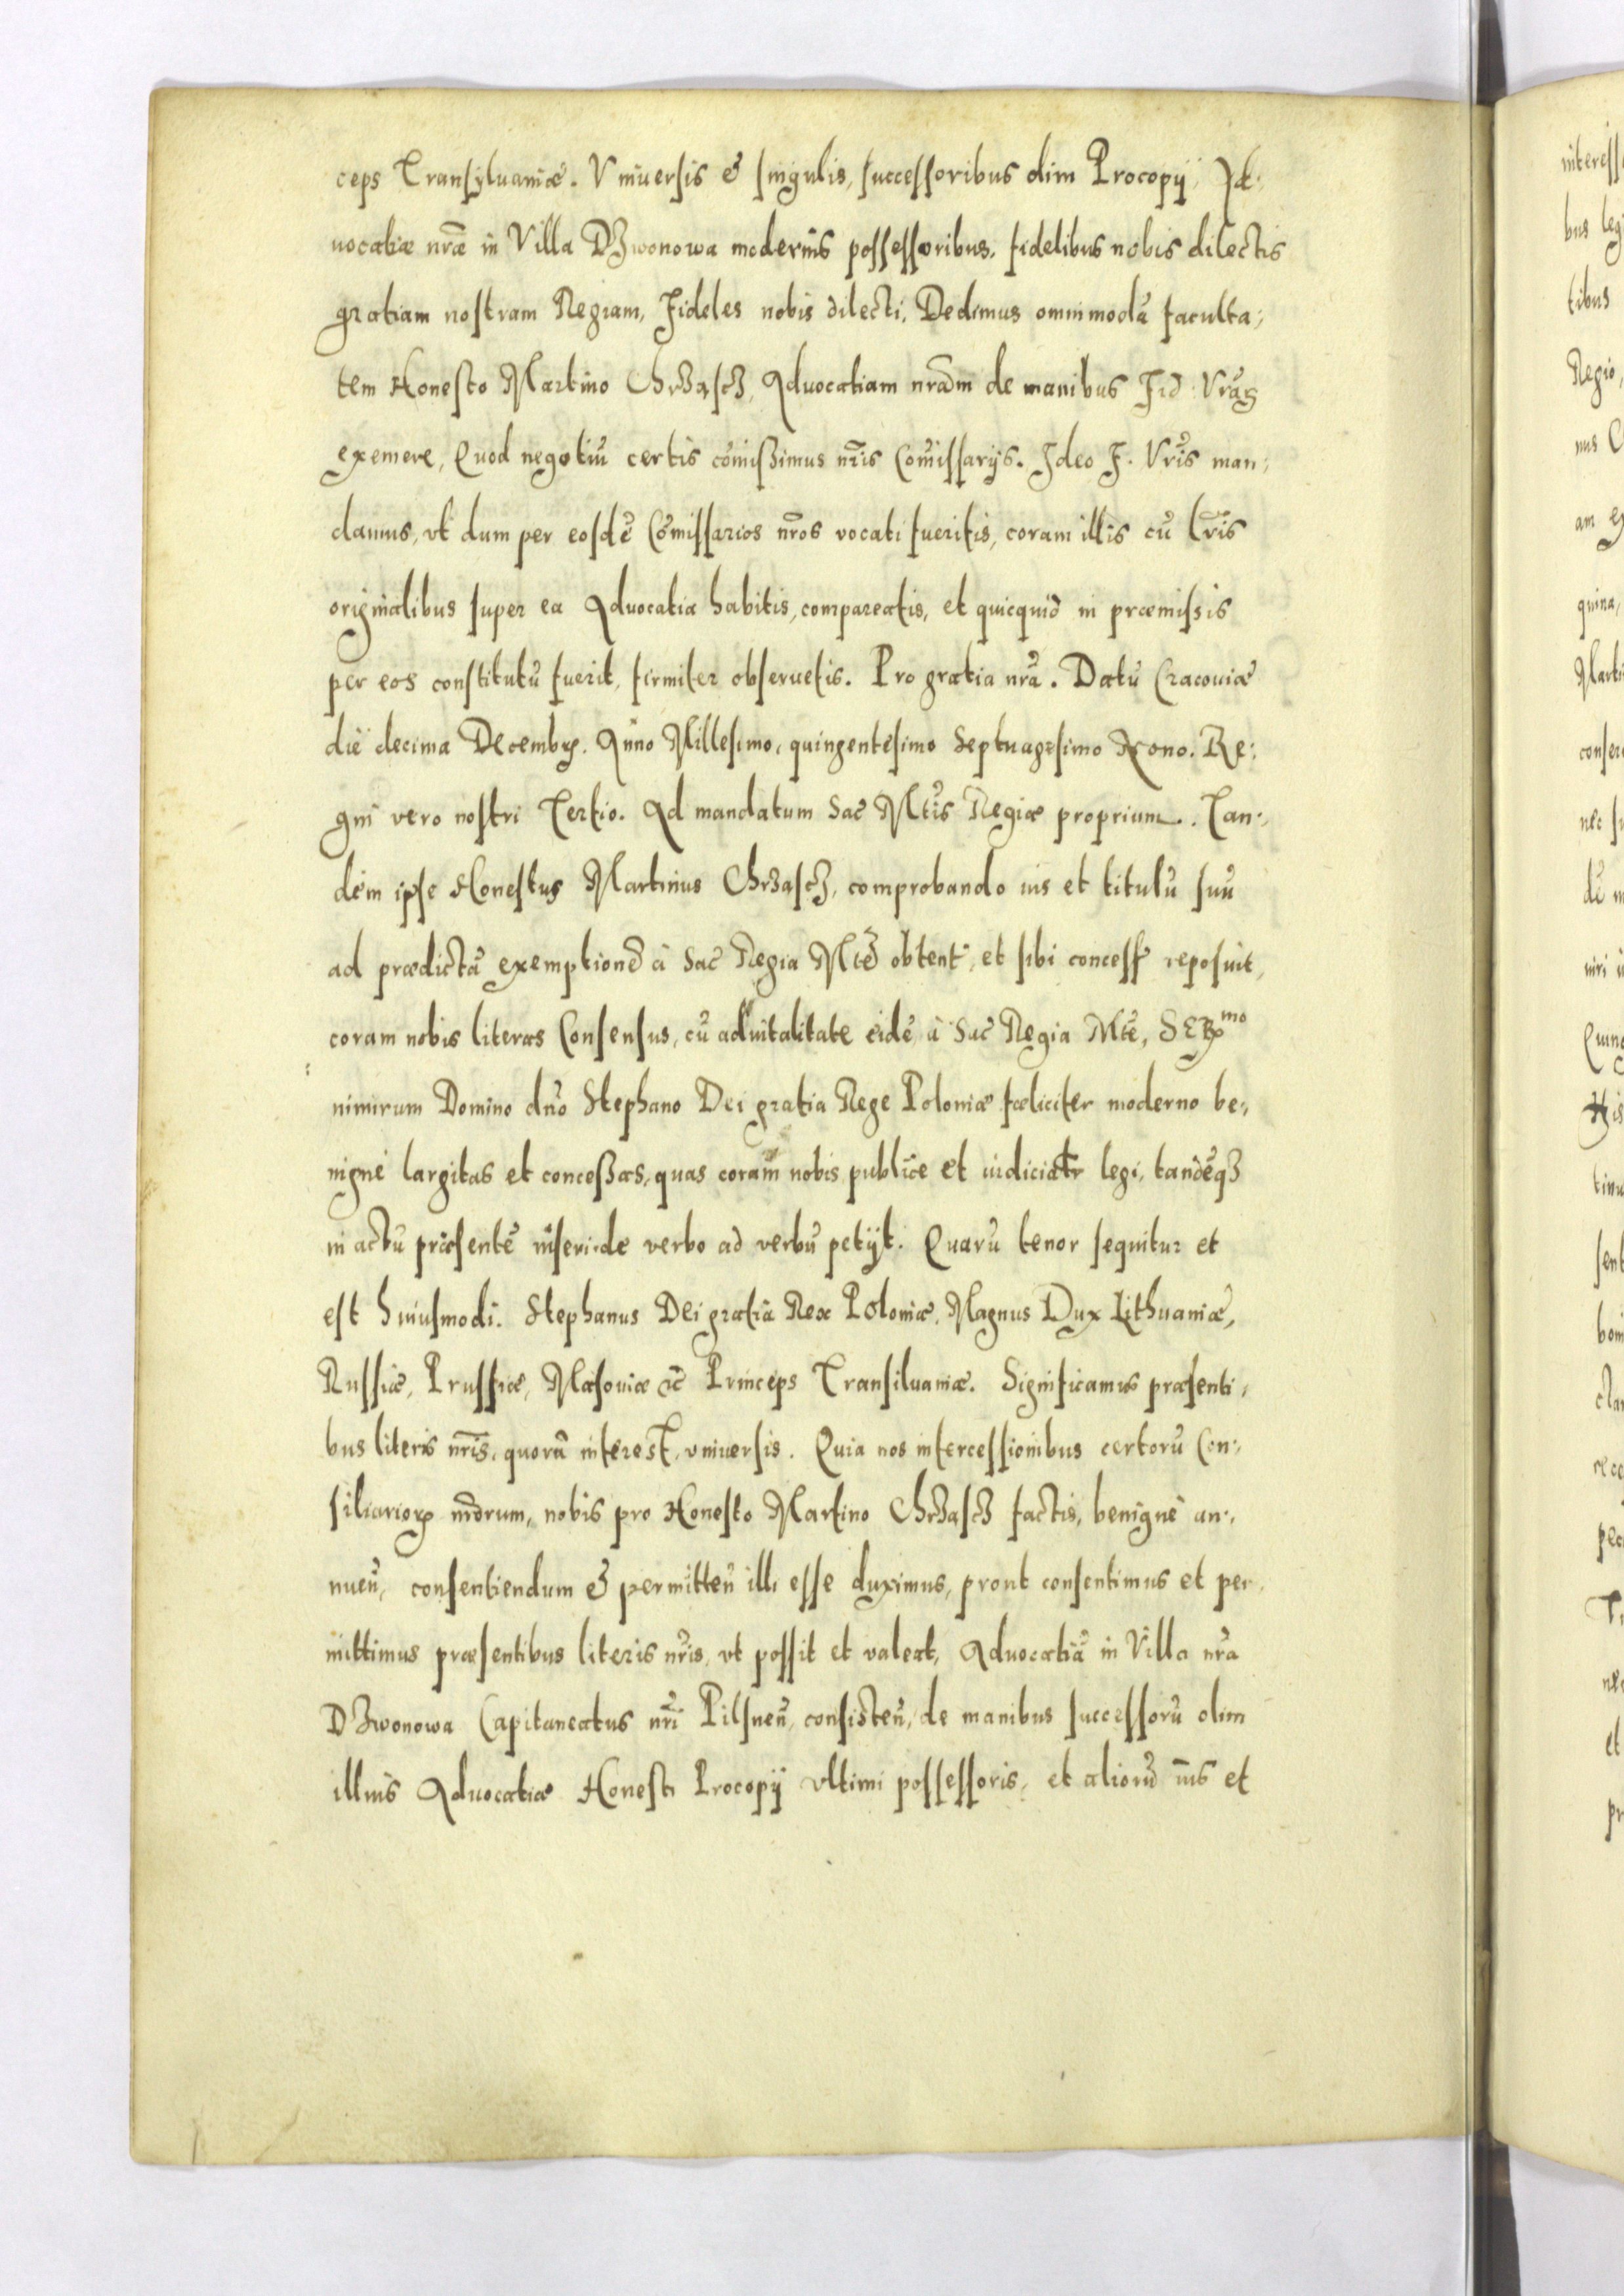 ceps Transyluaniæ. Vniuersis & singulis, successoribus olim Procopij, Ad:
uocatiæ nrãe in Villa DZwonowa modernis possessoribus, fidelibus nobis dilectis
gratiam nostram Regiam, Fideles nobis dilecti. Dedimus omnimodã faculta:
tem Honesto Martino Chrząscz, Aduocatiam nrãm de manibus Fid: Vrãr
exemere, Quod negotiũ certis cõmißimus nrĩs Comissarijs. Ideo F. Vrĩs man:
damus, vt dum per eosdẽ Cõmissarios nrõs vocati fueritis, coram illis cũ lrĩs
originalibus super ea Aduocatia habitis, compareatis, et quicquid in præmissis
per eos constitutũ fuerit, firmiter obseruetis. Pro gratia nrã. Datũ Cracouiæ
die decima Decembr. Anno Millesimo, quingentesimo Septuagesimo Nono. Re:
gni vero nostri Tertio. Ad mandatum Sac Mtis Regiæ proprium. Tan:
dem ipse Honestus Martinus Chrząscz, comprobando ius et titulũ suũ
ad prædictã exemptionẽ à Sac Regia Mtẽ obtent, et sibi concess reposuit,
coram nobis literas Consensus, cũ aduitalitate eidẽ à Sac Regia Mtẽ, SERmo
nimirum Domino dno Stephano Dei gratia Rege Poloniæ fæliciter moderno be:
nigne largitas et conceßas, quas coram nobis publice et iudicialr legi, tandẽqз
in actũ præsentẽ inseri de verbo ad verbũ petijt. Quarũ tenor sequitur et
est huiusmodi. Stephanus Dei gratia Rex Poloniæ, Magnus Dux Lithuaniæ,
Russiæ, Prussiæ, Masouiæ &c Princeps Transiluaniæ. Significamus præsenti:
bus literis nrĩs, quorũ interest, vniuersis. Quia nos intercessionibus certorũ Con:
siliarior nrõrum, nobis pro Honesto Martino Chrząscz factis, benigne an:
nueñ, consentiendum & permitteñ illi esse duximus, prout consentimus et per
mittimus præsentibus literis nrĩs, vt possit et valeat, Aduocatiã in Villa nrã
DZwonowa Capitaneatus nrĩ Pilsneñ, consisteñ, de manibus successorũ olim
illius Aduocatiæ Honesti Procopij vltimi possessoris, et aliorũ ius et